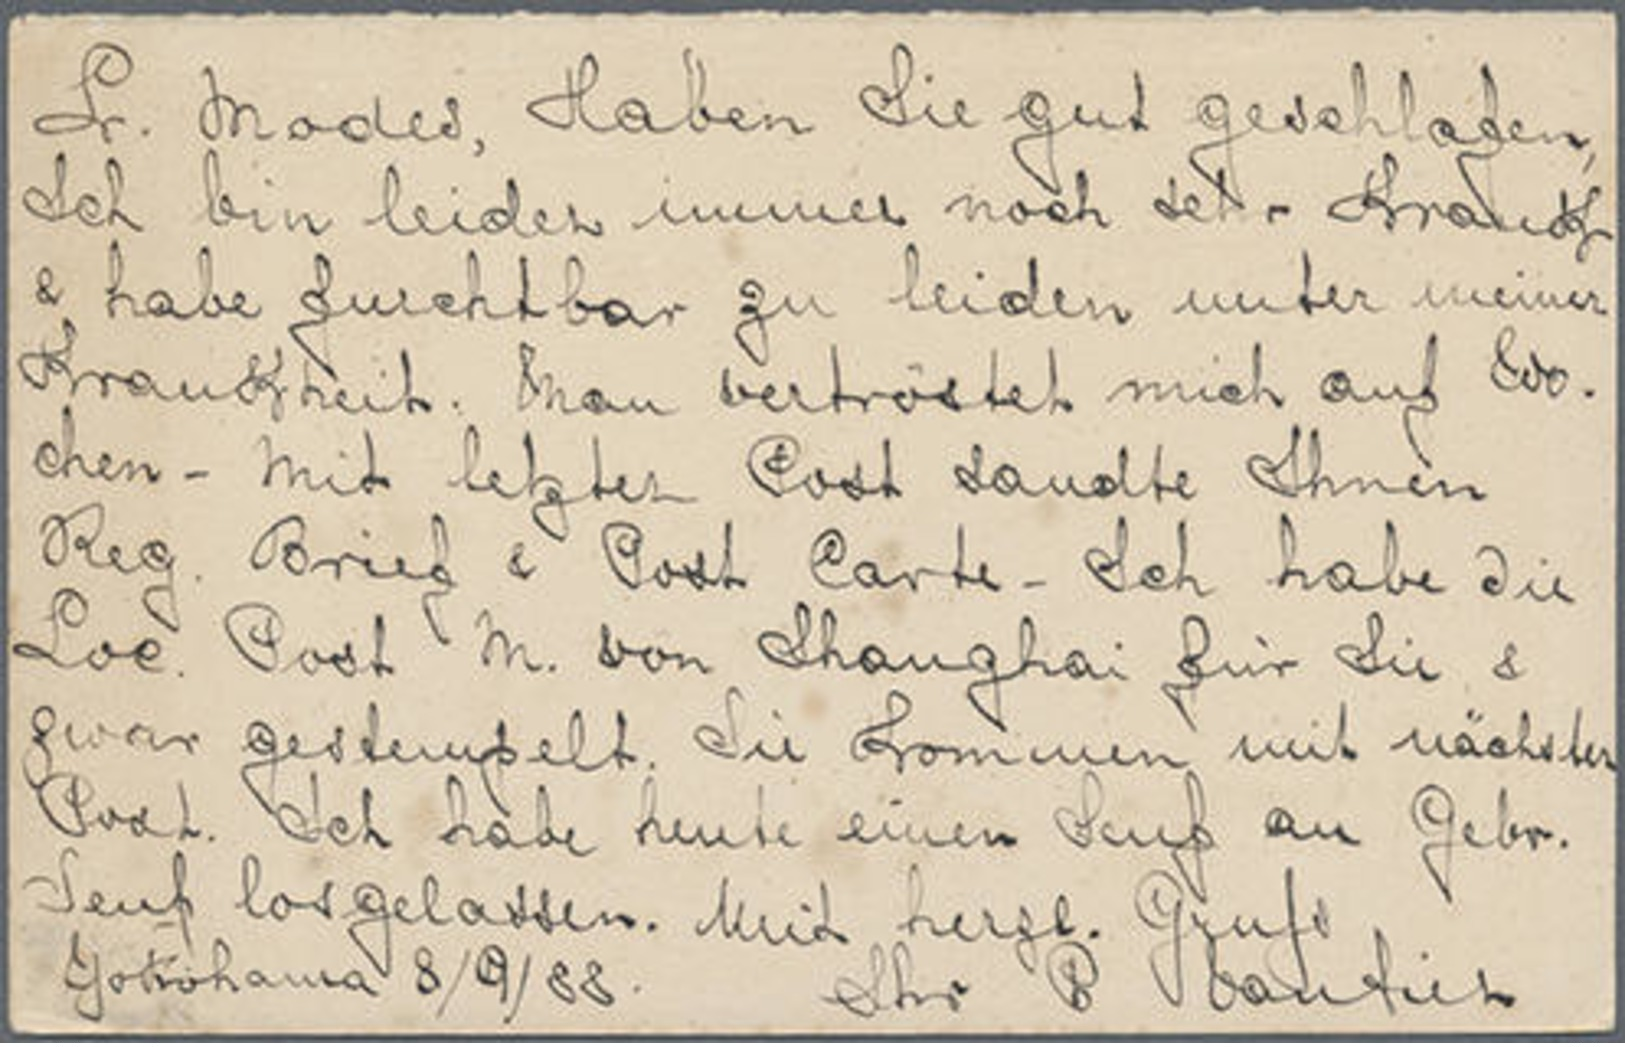 Lr. Modes, Haben Sie gut geschlafen,
Ich bin leider immer noch sehr Krank
& habe furchtbar zu leiden unter meiner
Krankheit. Man vertröstet mich auf Wo-
chen - Mit letzter Post sandte Ihnen
Reg. Brief & Post Carte - Ich habe die
Loc. Post M. von Shanghai für Sie &
zwar gestempelt. Sie kommen mit nächster
Post. Ich habe heute einen Senf an Gebr.
Senf losgelassen. Mit herzl. Gruß
Yokohama 8/9/88. Ihr